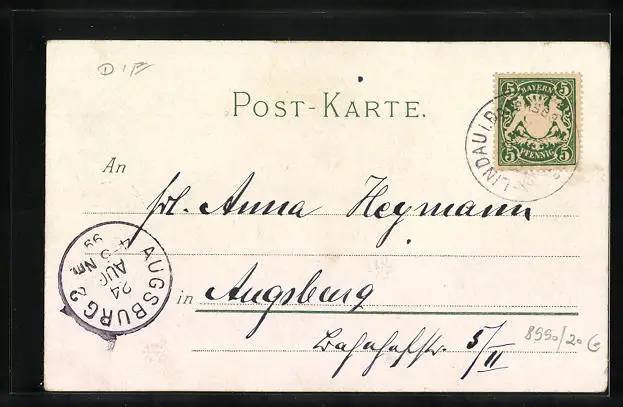 D
POST-KARTE.
5 BAYERN 5
5 PFENNIG 5
LINDAU I.B.
An
Frl. Anna Heymann
AUGSBURG 2
24 AUG
4-5 Nm.
99
in Augsburg
Bahnhofstr. 5/II
8990/20 G